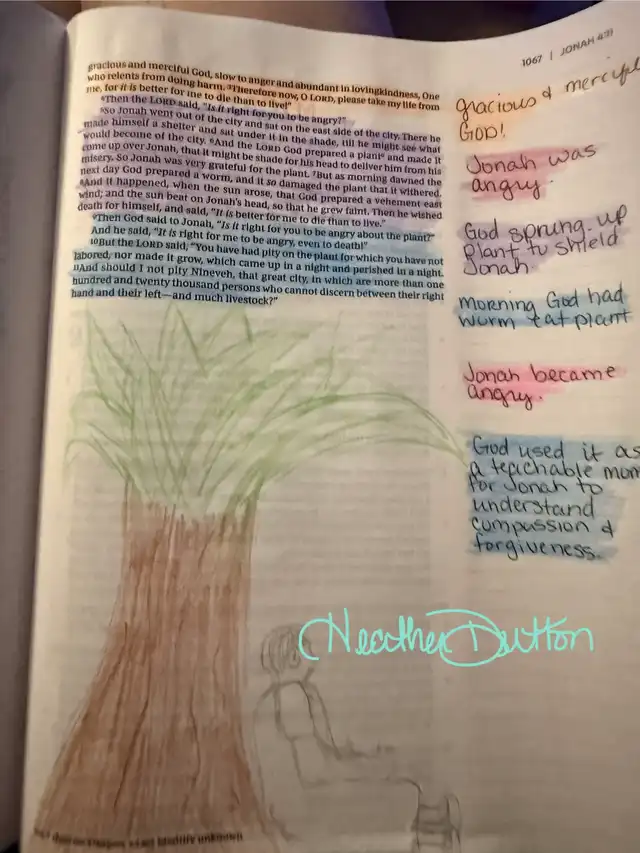 1067 | JONAH 4:11
gracious and merciful God, slow to anger and abundant in lovingkindness, One
who relents from doing harm. ³Therefore now, O LORD, please take my life from
me, for it is better for me to die than to live!"
⁴Then the LORD said, "Is it right for you to be angry?"
⁵So Jonah went out of the city and sat on the east side of the city. There he
made himself a shelter and sat under it in the shade, till he might see what
would become of the city. ⁶And the LORD God prepared a plant and made it
come up over Jonah, that it might be shade for his head to deliver him from his
misery. So Jonah was very grateful for the plant. ⁷But as morning dawned the
next day God prepared a worm, and it so damaged the plant that it withered.
⁸And it happened, when the sun arose, that God prepared a vehement east
wind; and the sun beat on Jonah's head, so that he grew faint. Then he wished
death for himself, and said, "It is better for me to die than to live."
⁹Then God said to Jonah, "Is it right for you to be angry about the plant?"
And he said, "It is right for me to be angry, even to death!"
¹⁰But the LORD said, "You have had pity on the plant for which you have not
labored, nor made it grow, which came up in a night and perished in a night.
¹¹And should I not pity Nineveh, that great city, in which are more than one
hundred and twenty thousand persons who cannot discern between their right
hand and their left—and much livestock?"
gracious & merciful
God!
Jonah was
angry.
God sprung up
plant to shield
Jonah
morning God had
worm eat plant
Jonah became
angry.
God used it as
a teachable mom
for Jonah to
understand
compassion &
forgiveness.
Heather Dutton
identity unknown